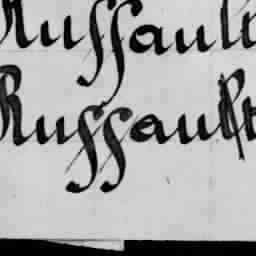 Russault
Russault